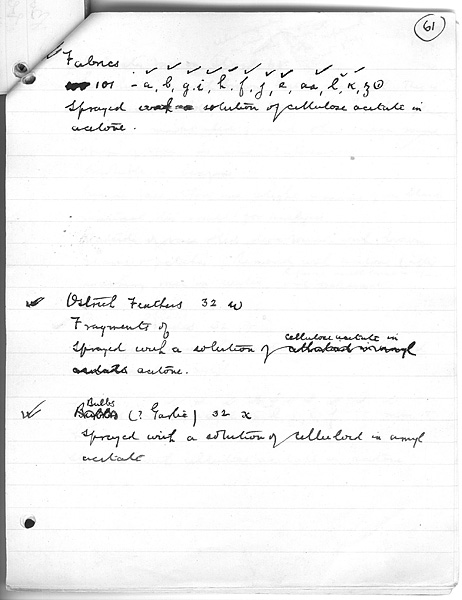 61
Fabrics
101 - a, b, g, i, h, f, j, e, aa, l, k, z
Sprayed solution of cellulose acetate in
acetone.
Ostrich Feathers 32 w
Fragments of
cellulose acetate in
Sprayed with a solution of
acetone.
Bulbs
(? Garlic) 32 x
Sprayed with a solution of celluloid in amyl
acetate